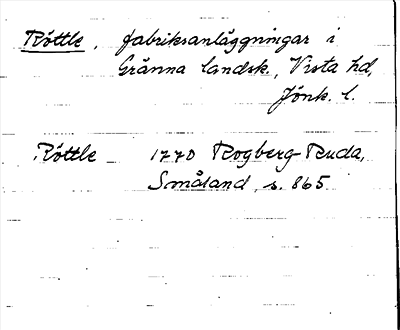 Röttle, fabriksanläggningar i
Gränna landsk., Vista hd,
Jönk. l.
Röttle 1770 Rogberg-Ruda,
Småland, s. 865.